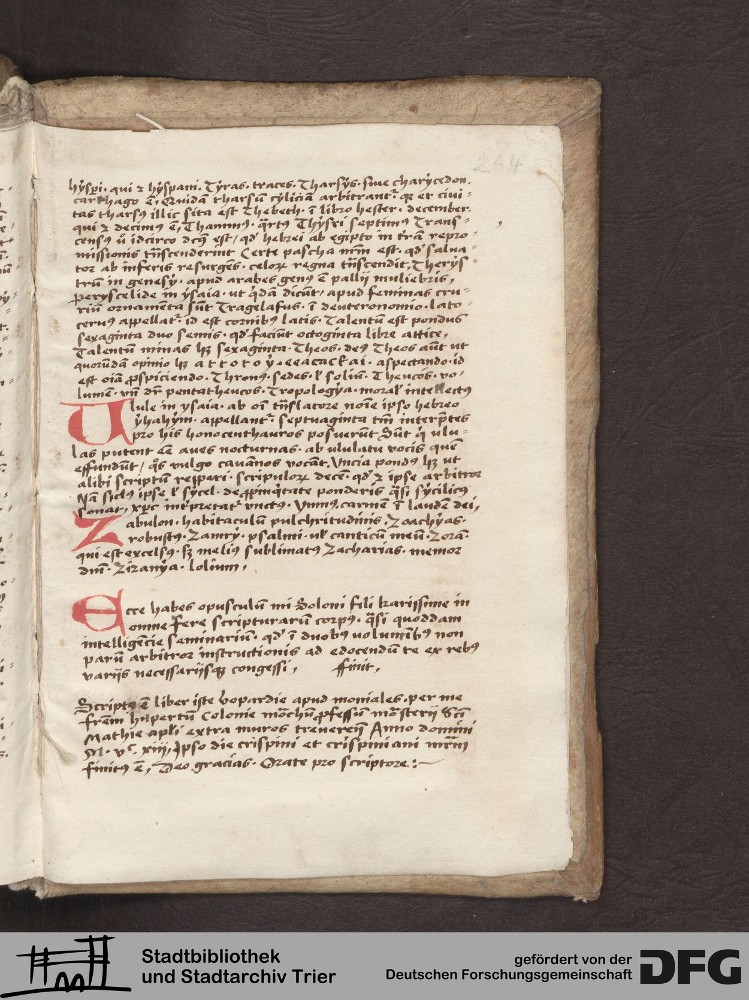 264
hÿspi · qui ⁊ hÿspani · Tÿras · traces · Tharsÿs · siue charÿcedon ·
carthago ē · Quidā tharsū cÿliciā arbitrant᷑ · qꝫ et ciui
tas tharsÿ illic sita est Thebeth · ī libro hester · december ·
qui ⁊ decimꝰ ē, Thammꝰ · qrtꝰ Thÿsri septimꝰ Trans-
censꝰ ū idcirco dcūs est / qd' hebrei ab egipto in trā repro-
missionis trāscenderint Certe pascha nrm̄ est · qd' salua-
tor ab inferis resurgēs · celoꝝ regna trāscendit, Therÿs-
trū in genesÿ · apud arabes genꝰ ē pallii muliebris,
peryscelide in ÿsaia · ut q̄dā dicūt, apud feminas cru-
riū ornamēta sūt Tragelafus · ī deuteronomio · lato-
cerus appellat᷑ · id est cornibꝰ latis · Talentū est pondus
sexaginta duo semis · qd' faciūt octoginta libre attice,
Talentū minas hꝫ sexaginta · Theos · deꝰ Theos aūt ut
quorūdam opinio hꝫ
aspectando · id
est oīa ꝓspiciendo · Thronꝰ · sedes · ł soliū · Theucos · vo-
lumē · vn̄ dr̄ pentatheucos · Tropologÿa · moral' intellectus
Ulule in ysaia · ab oī trāslatore noīe ipso hebreo
ÿhahÿm · appellant᷑ · septuaginta tm̄ interp̄tes
pro his honocenthauros posuerūt Sūt q̄ ulu-
las putent eē aues nocturnas · ab ululatu vocis quē
effundūt / q̄s vulgo cauānos vocāt, Vncia pondꝰ hꝫ ut
alibi scripti rep̱peri · scripuloꝝ decē · qd' ⁊ ipse arbitror
Nā siclꝰ ipse ł sÿcel · de ꝓpinq̄tate ponderis q̄si sÿcilicꝰ
sonat, xp̄c interpretat᷑ vnctꝰ · Ymnꝰ, carmē ī laudē dei,
Zabulon · habitaculū pulchritudinis · Zoachÿas ·
robustꝰ · Zamrÿ · psalmꝰ · ul' canticū meū · Zorā ·
qui est excelsꝰ · sꝫ meliꝰ sublimatꝰ Zacharias · memor
dn̄i · Zizanÿa · loliium,
Ecce habes opusculū mi Soloni fili karissime in
omne fere scripturarū corpꝰ · q̄si quoddam
intelligēcie seminariū · qd' ī duobꝰ voluminibꝰ non
parū arbitror instructionis ad edocendū te ex rebꝰ
variis necessariisqꝫ congessi, ffinit,
Scriptꝰ ē liber iste bopardie apud moniales · per me
frēm hupertū Colonie mōchū ꝓfessū mōsterÿ Sc̄i
Mathie apl'i extra muros treuereñ Anno domini
M · vᶜ · xiii, Ipso die crispini et crispiniani mr̄m
finitꝰ ē, Deo gracias · Orate pro scriptore :~
Stadtbibliothek
und Stadtarchiv Trier
gefördert von der
Deutschen Forschungsgemeinschaft
DFG